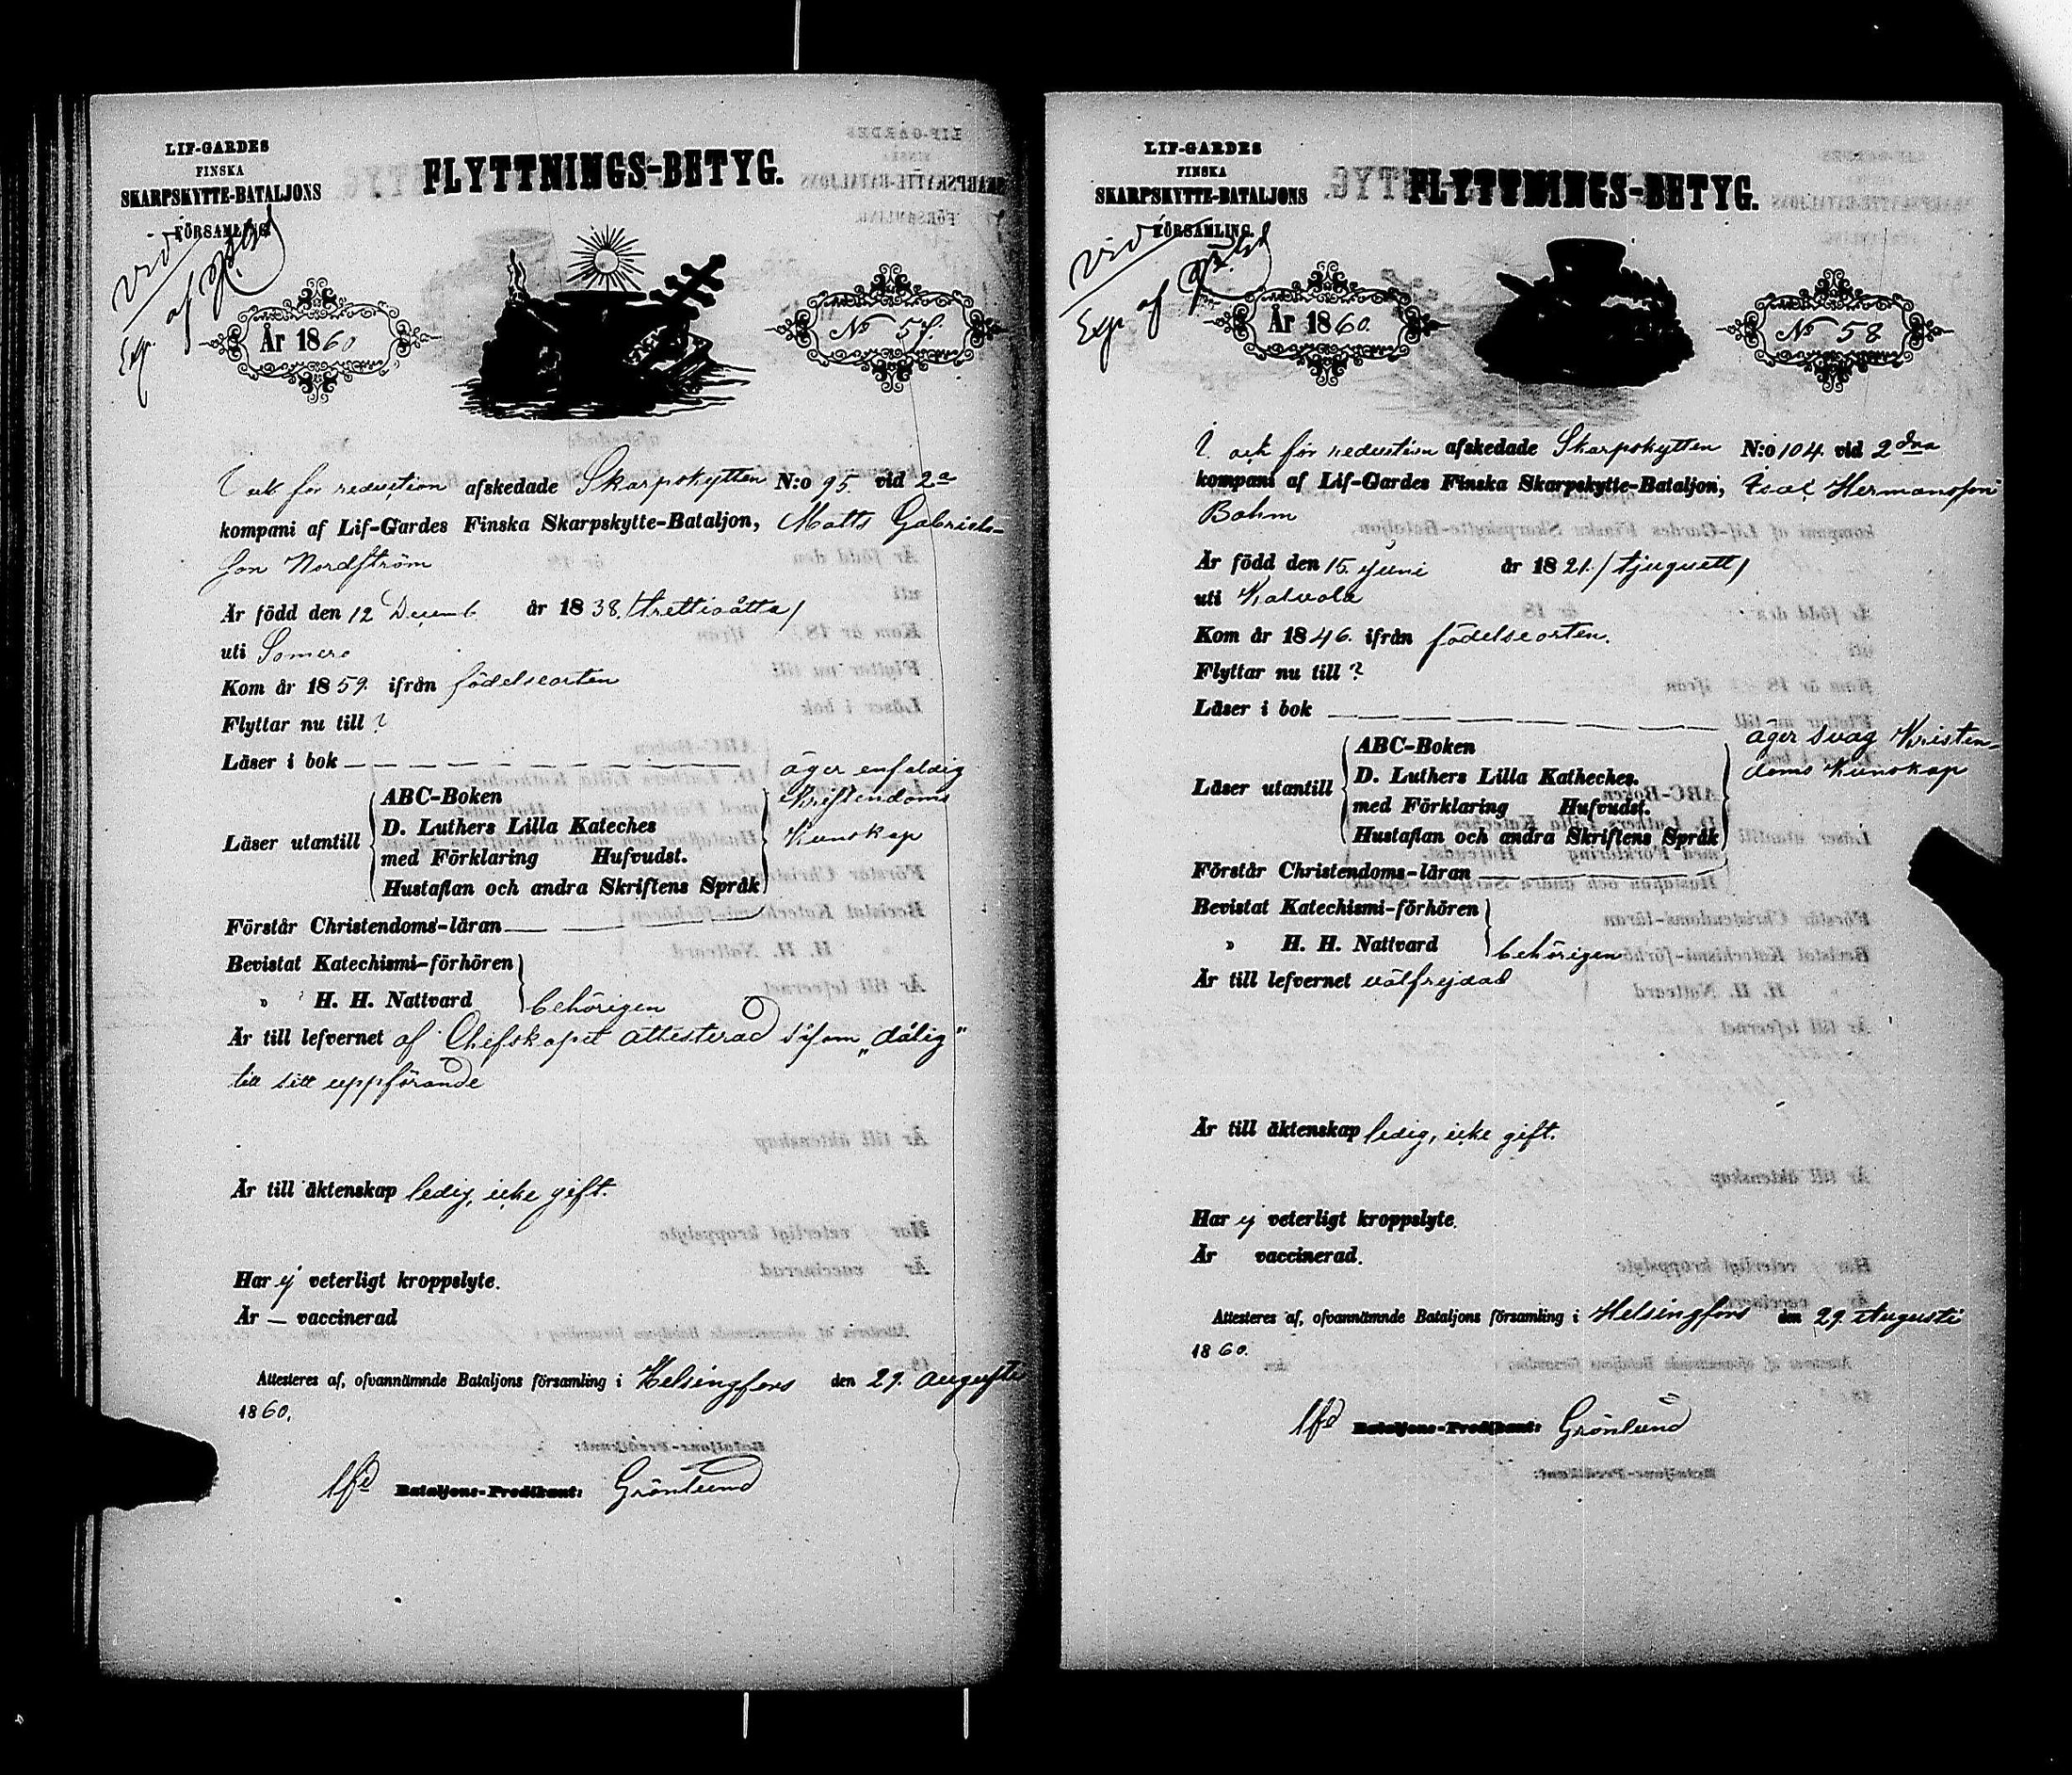 LIF-GARDES
FINSKA
SKARPSKYTTE-BATALJONS
FÖRSAMLING.
FLYTTNINGS-BETYG.
vid
Exp. af
År 1860
No 57.
afskedade Skarpskytten N:o 95. vid 2a
kompani af Lif-Gardes Finska Skarpskytte-Bataljon, Matts Gabriels-
son Nordström
Är född den 12 Decemb. år 1838 /trettioåtta/
uti Somero
Kom år 1859. ifrån födelseorten
Flyttar nu till ?
Läser i bok
äger enfaldig
Kristendoms
Kunskap
Läser utantill
ABC-Boken
D. Luthers Lilla Kateches
med Förklaring Hufvudst.
Hustaflan och andra Skriftens Språk
Förstår Christendoms-läran
Bevistat Katechismi-förhören
» H. H. Nattvard
behörigen
Är till lefvernet af Chefskapet attesterad såsom „dålig"
till sitt uppförande
Är till äktenskap ledig, icke gift.
Har ej veterligt kroppslyte.
Är — vaccinerad
Attesteres af, ofvannämnde Bataljons församling i Helsingfors den 29. Augusti
1860.
Bataljons-Predikant: Grönlund
LIF-GARDES
FINSKA
SKARPSKYTTE-BATALJONS
FÖRSAMLING.
FLYTTNINGS-BETYG.
vid
Exp. af
År 1860.
No 58
för reduction afskedade Skarpskytten N:o 104. vid 2dra
kompani af Lif-Gardes Finska Skarpskytte-Bataljon, Isac Hermansson
Bohm
Är född den 15. Juni år 1821. /tjuguett/
uti Kalvola
Kom år 1846. ifrån födelseorten.
Flyttar nu till ?
Läser i bok
äger svag Kristen-
doms Kunskap
Läser utantill
ABC-Boken
D. Luthers Lilla Katheches.
med Förklaring Hufvudst.
Hustaflan och andra Skriftens Språk
Förstår Christendoms-läran
Bevistat Katechismi-förhören
» H. H. Nattvard
behörigen
Är till lefvernet välfrejdad
Är till äktenskap ledig, icke gift.
Har ej veterligt kroppslyte.
Är vaccinerad.
Attesteres af, ofvannämnde Bataljons församling i Helsingfors den 29. Augusti
1860.
Bataljons-Predikant: Grönlund